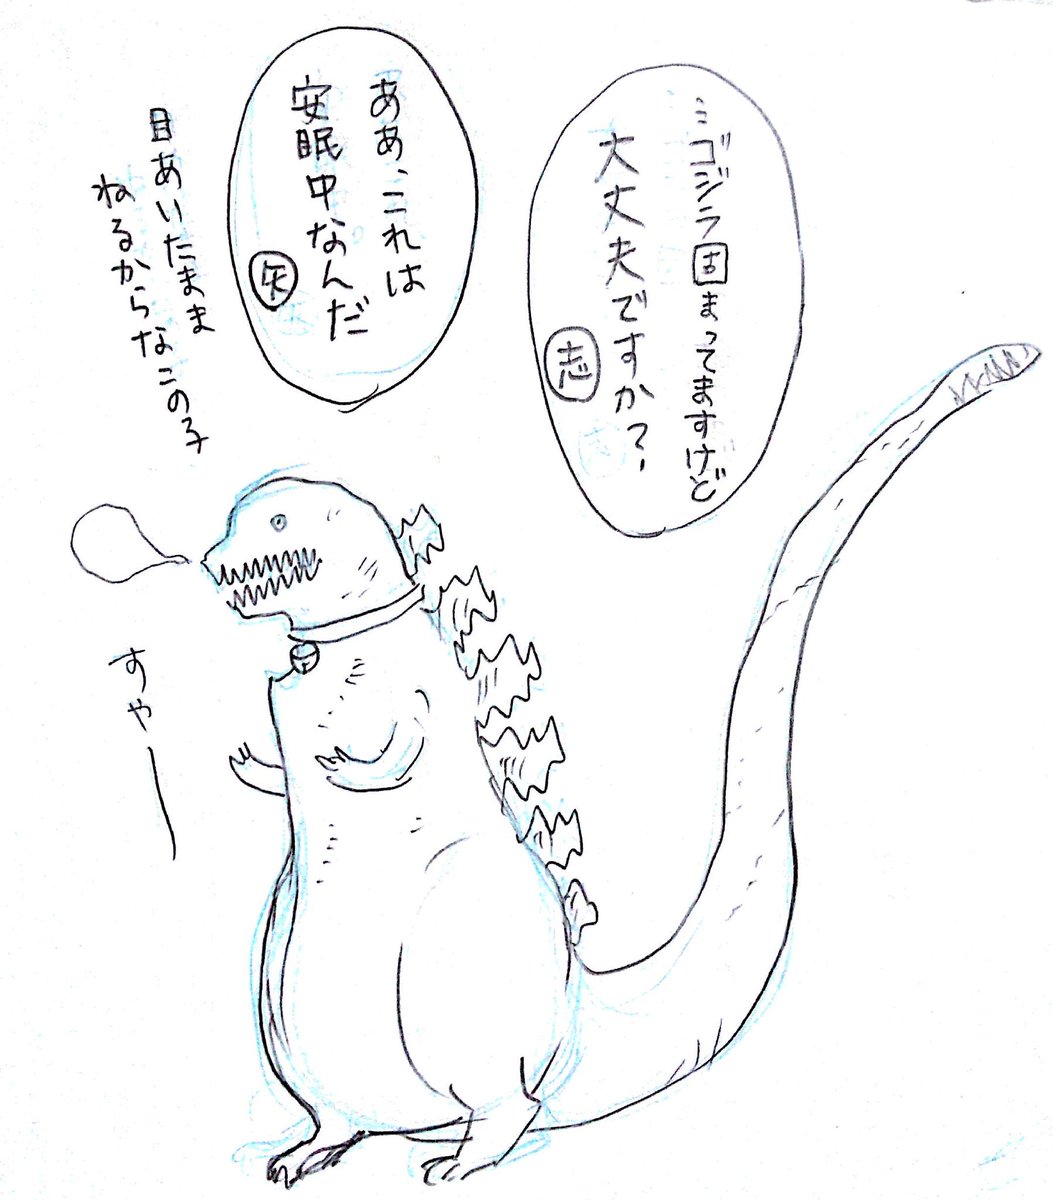 …ゴジラ固まってますけど
大丈夫ですか?
志
ああ、これは
安眠中なんだ
矢
目あいたまま
ねるからなこの子
すやー